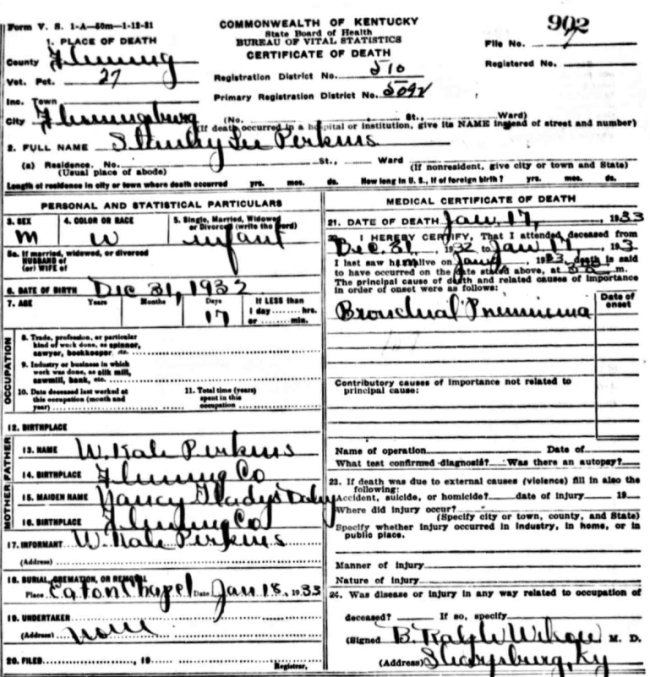 Form V. S. 1-A—50m—1-12-31
COMMONWEALTH OF KENTUCKY
State Board of Health
BUREAU OF VITAL STATISTICS
CERTIFICATE OF DEATH
902
File No. 7
Registered No.
1. PLACE OF DEATH
County Fleming
Vot. Pct. 27
Registration District No. 510
Inc. Town
Primary Registration District No. 5092
City Flemingsburg (No. St., Ward)
(If death occurred in a hospital or institution, give its NAME instead of street and number)
2. FULL NAME Stanley Lee Perkins
(a) Residence. No. St., Ward
(Usual place of abode) (If nonresident, give city or town and State)
Length of residence in city or town where death occurred yrs. mos. ds. How long in U. S., if of foreign birth? yrs. mos. ds.
PERSONAL AND STATISTICAL PARTICULARS
3. SEX
M
4. COLOR OR RACE
W
5. Single, Married, Widowed or Divorced (write the word)
infant
5a. If married, widowed, or divorced
HUSBAND of
(or) WIFE of
6. DATE OF BIRTH Dec 31, 1932
7. AGE Years Months Days If LESS than
17 1 day hrs.
or min.
OCCUPATION
8. Trade, profession, or particular
kind of work done, as spinner,
sawyer, bookkeeper, etc.
9. Industry or business in which
work was done, as silk mill,
sawmill, bank, etc.
10. Date deceased last worked at
this occupation (month and
year)
11. Total time (years)
spent in this
occupation
12. BIRTHPLACE
FATHER
13. NAME W. Kale Perkins
14. BIRTHPLACE Fleming Co
MOTHER
15. MAIDEN NAME Nancy Gladys
16. BIRTHPLACE Fleming Co
17. INFORMANT W. Kale Perkins
(Address)
18. BURIAL, CREMATION, OR REMOVAL
Place Eaton Chapel Date Jan 18, 1933
19. UNDERTAKER
(Address) none
20. FILED , 19
Registrar.
MEDICAL CERTIFICATE OF DEATH
21. DATE OF DEATH Jan 17, 1933
22. I HEREBY CERTIFY, That I attended deceased from
Dec. 31, 1932 to Jan 17, 193
I last saw him alive on Jan 1933, death is said
to have occurred on the date stated above, at m.
The principal cause of death and related causes of importance
in order of onset were as follows:
Date of onset
Bronchial Pneumonia
Contributory causes of importance not related to
principal cause:
Name of operation Date of
What test confirmed diagnosis? Was there an autopsy?
23. If death was due to external causes (violence) fill in also the
following:
Accident, suicide, or homicide? date of injury 19
Where did injury occur?
(Specify city or town, county, and State)
Specify whether injury occurred in industry, in home, or in
public place.
Manner of injury
Nature of injury
24. Was disease or injury in any way related to occupation of
deceased? If so, specify
(Signed B. Ralph Wilson M. D.
(Address) Sharpsburg, Ky